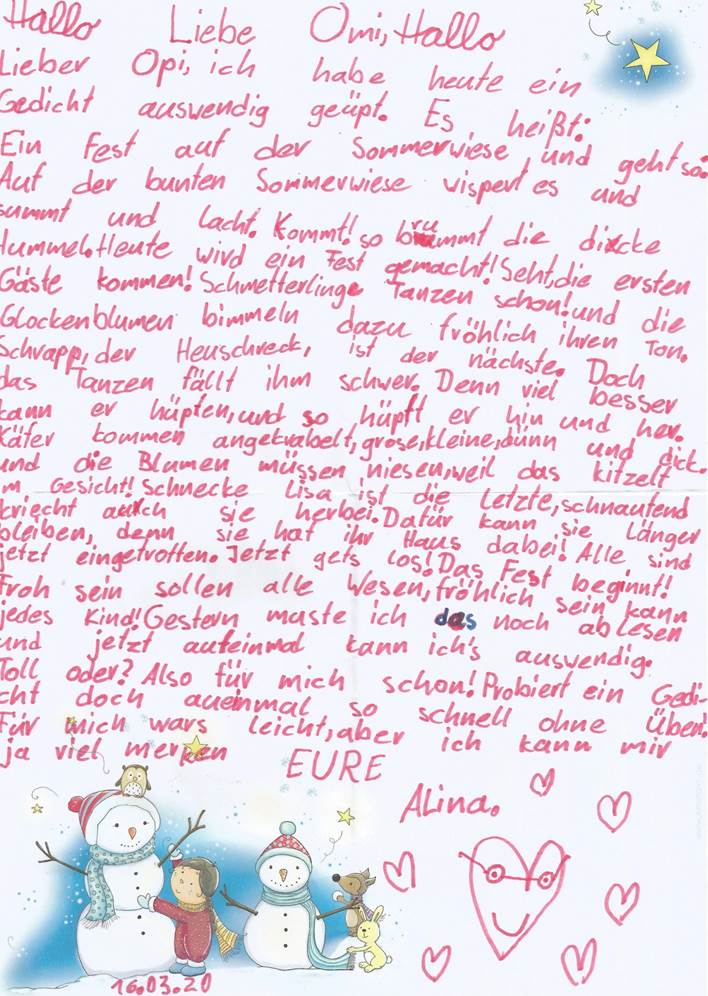 Hallo Liebe Omi, Hallo
Lieber Opi, ich habe heute ein
Gedicht auswendig geüpt. Es heißt:
Ein Fest auf der Sommerwiese, und geht so:
Auf der bunten Sommerwiese vispert es und
summt und lacht. Kommt! so brummt die dicke
Hummel. Heute wird ein Fest gemacht! Seht, die ersten
Gäste kommen! Schmetterlinge Tanzen schon! und die
Glockenblumen bimmeln dazu fröhlich ihren Ton.
Schrapp, der Heuschreck, ist der nächste. Doch
das Tanzen fällt ihm schwer. Denn viel besser
kann er hüpfen, und so hüpft er hin und her.
Käfer kommen angekrabelt, grose, kleine, dünn und dick.
und die Blumen müssen niesen, weil das kitzelt
m Gesicht! Schnecke Lisa ist die Letzte, schnaufend
kriecht auch sie herbei. Dafür kann sie Länger
bleiben, denn sie hat ihr Haus dabei! Alle sind
jetzt eingetroffen. Jetzt gets los! Das Fest beginnt!
Froh sein sollen alle Wesen, fröhlich sein kann
jedes Kind! Gestern muste ich das noch ablesen
und jetzt aufeinmal kann ich's auswendig.
Toll oder? Also für mich schon! Probiert ein Gedi-
cht doch aueinmal so schnell ohne Üben!
Für mich wars leicht, aber ich kann mir
ja viel merken
EURE
Alina.
16.03.20